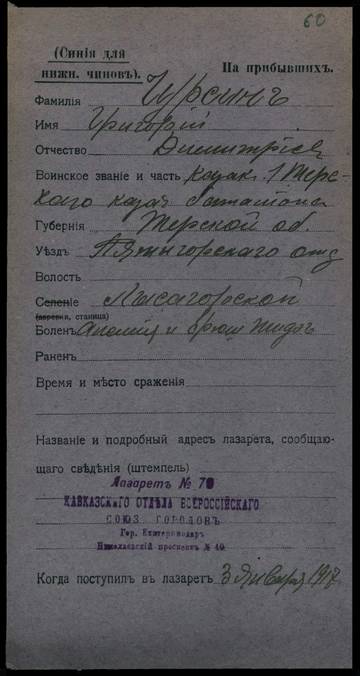 60
(Синія для
нижн. чиновъ).
На прибывшихъ.
Фамилія Ирсинъ
Имя Григорій
Отчество Димитріев
Воинское званіе и часть казак 1 Терс-
каго казач баталіона
Губернія Терской об.
Уѣздъ Пятигорскаго отд
Волость
Селеніе Лысогорской
(деревня, станица)
Боленъ Анемія и брюш тифъ
Раненъ
Время и мѣсто сраженія
Названіе и подробный адресъ лазарета, сообщаю-
щаго свѣдѣнія (штемпель)
Лазаретъ № 70
КАВКАЗСКАГО ОТДѢЛА ВСЕРОССІЙСКАГО
СОЮЗ ГОРОДОВЪ
Гор. Екатеринодаръ
Николаевскій проспектъ № 40
Когда поступилъ въ лазаретъ 3 Января 1917